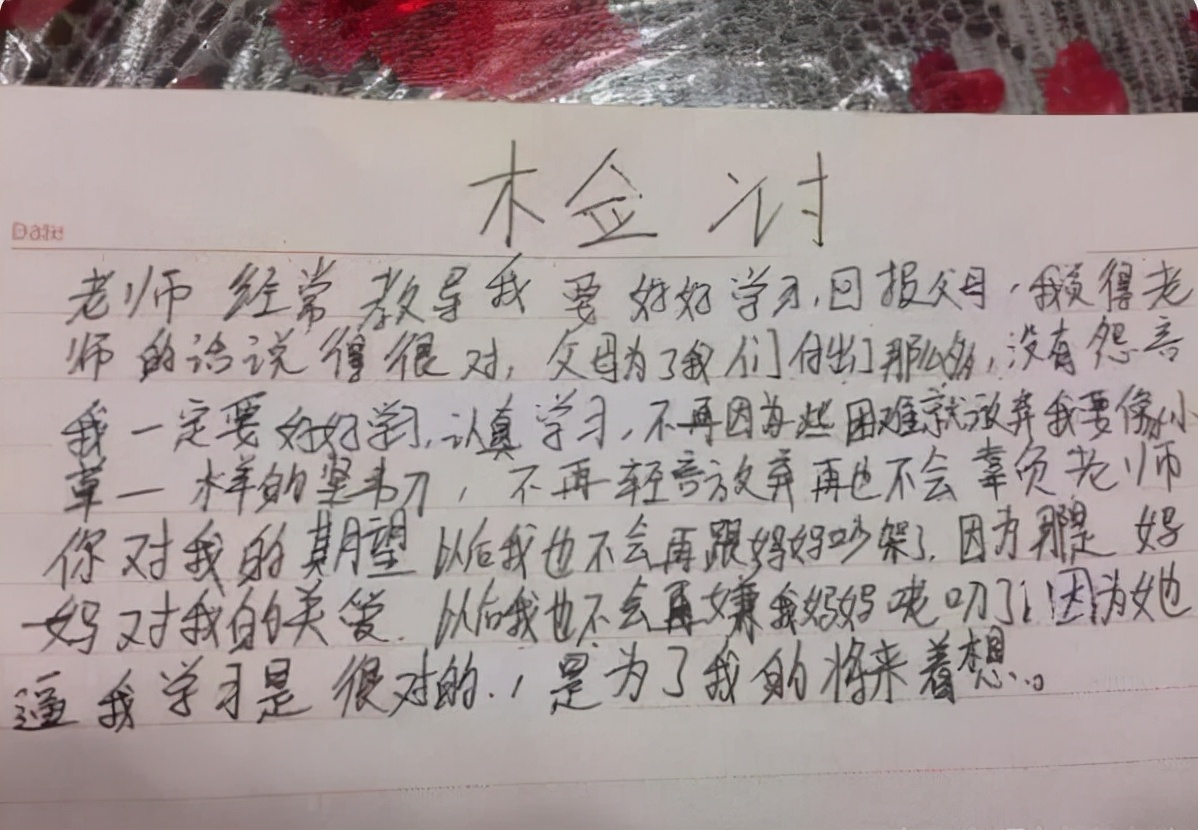 检讨
Date
老师经常教导我要好好学习,回报父母,我觉得老
师的话说得很对,父母为了我们付出了那么多,没有怨言
我一定要好好学习,认真学习,不再因为些困难就放弃我要像小
草一样的坚韧,不再轻言放弃再也不会辜负老师
你对我的期望以后我也不会再跟妈妈吵架了,因为那是妈
妈对我的关爱.以后我也不会再嫌我妈妈唠叨了,因为她
逼我学习是很对的.,是为了我的将来着想...。